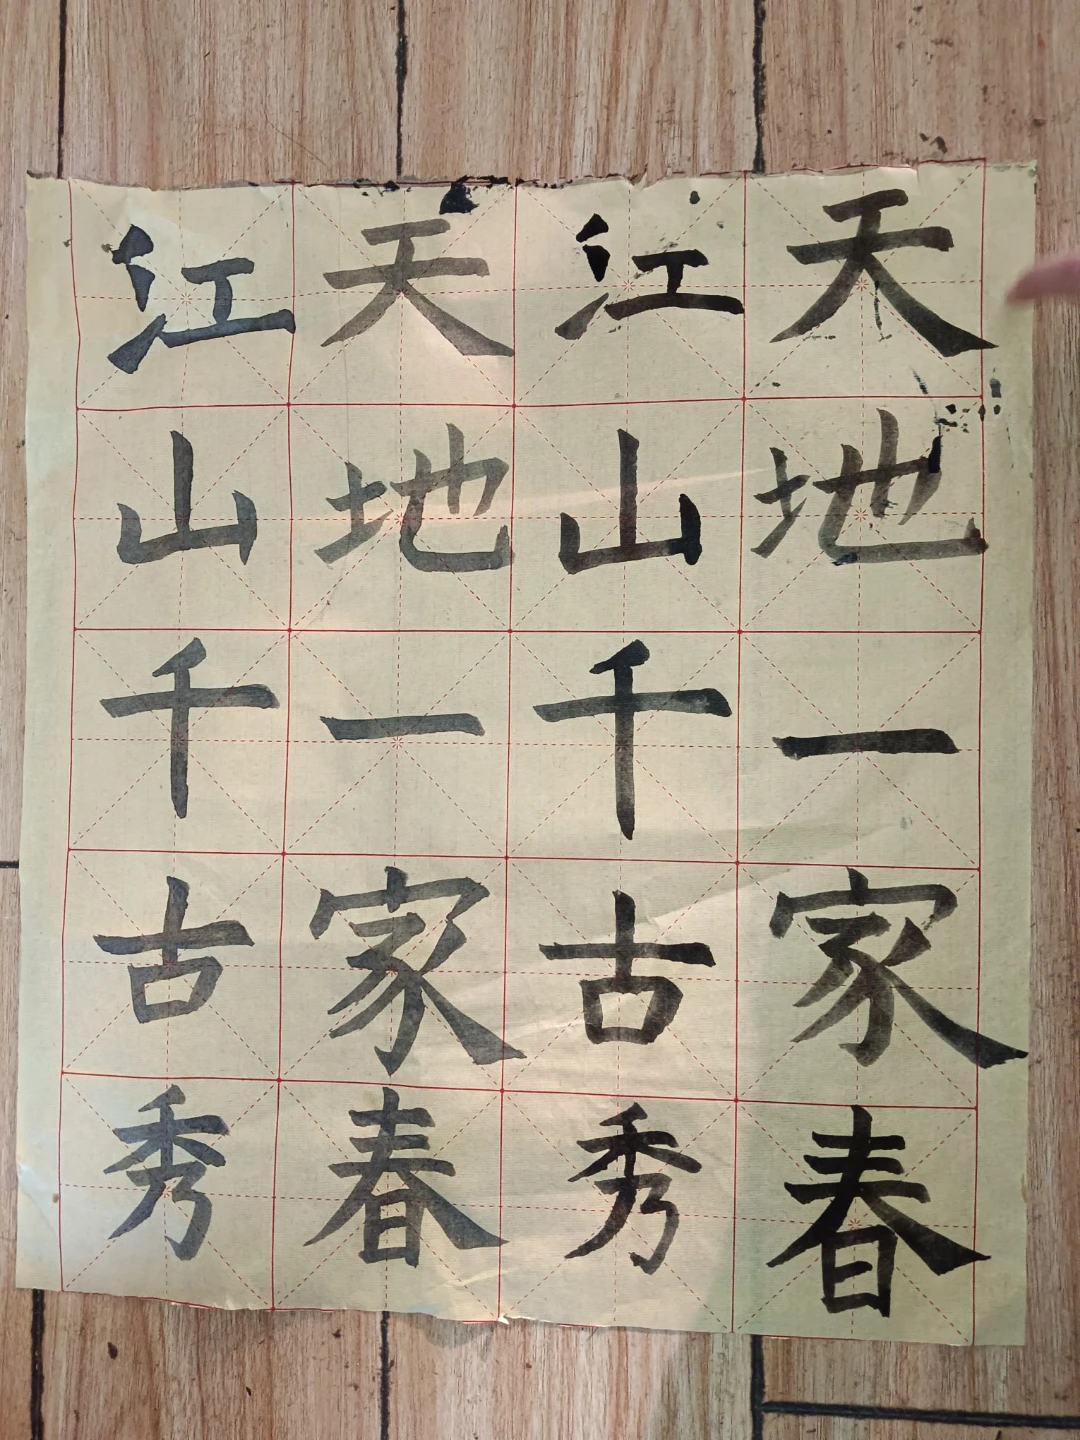 天地一家春
江山千古秀
天地一家春
江山千古秀